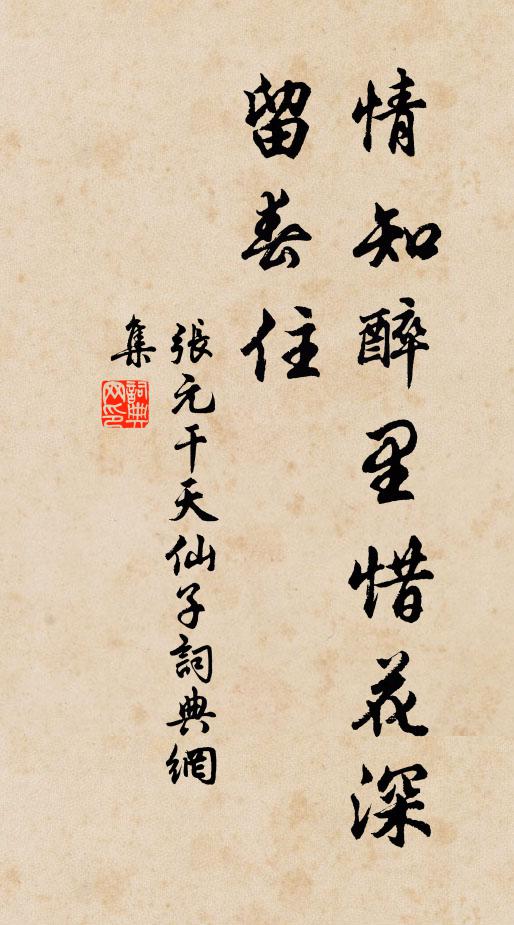 情知醉里惜花深
留春住
張元干天仙子詞典網
集
詞典网印